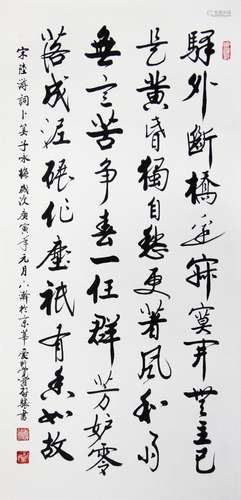 驛外斷橋邊寂寞開無主已
是黄昏獨自愁更著風和雨
無意苦争春一任群芳妒零
落成泥碾作塵祇有香如故
宋陸游詞卜算子咏梅歲次庚寅年元月於京華書